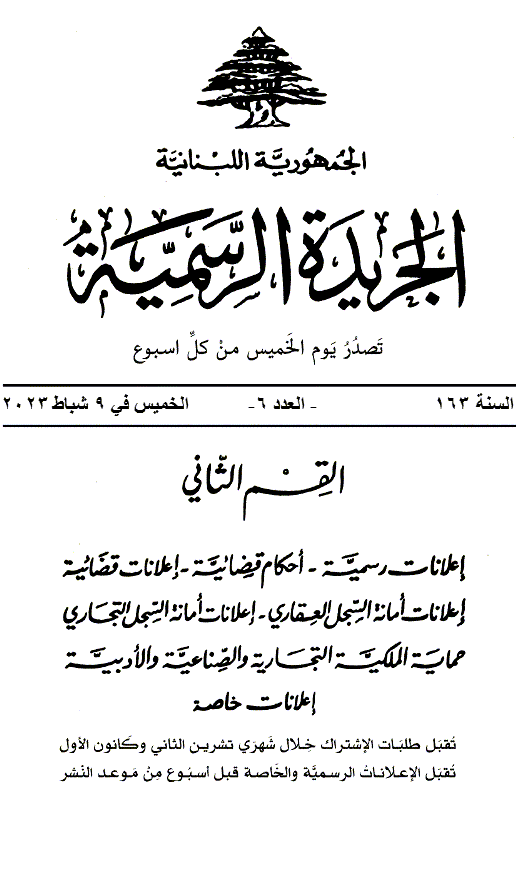 الجمهورية اللبنانية
الجريدة الرسمية
تَصدُرُ يَوم الخَميس منْ كلِّ اسبوع
السنة ١٦٣ - العدد ٦- الخميس في ٩ شباط ٢٠٢٣
القِسْم الثّاني
إعلانات رسميَّة - أحكام قضائيَّة - إعلانات قضائية
إعلانات أمانة السّجل العقاري - إعلانات أمانة السّجل التجاري
حماية الملكيَّة التجارية والصِّناعيَّة والأدبيَّة
إعلانات خاصة
تُقبَل طلبَات الإشتراك خِلال شَهرَي تشرين الثاني وكَانون الأول
تُقبَل الإعلانَات الرسميَّة والخَاصة قبل أسبُوع مِنْ مَوعد النّشر